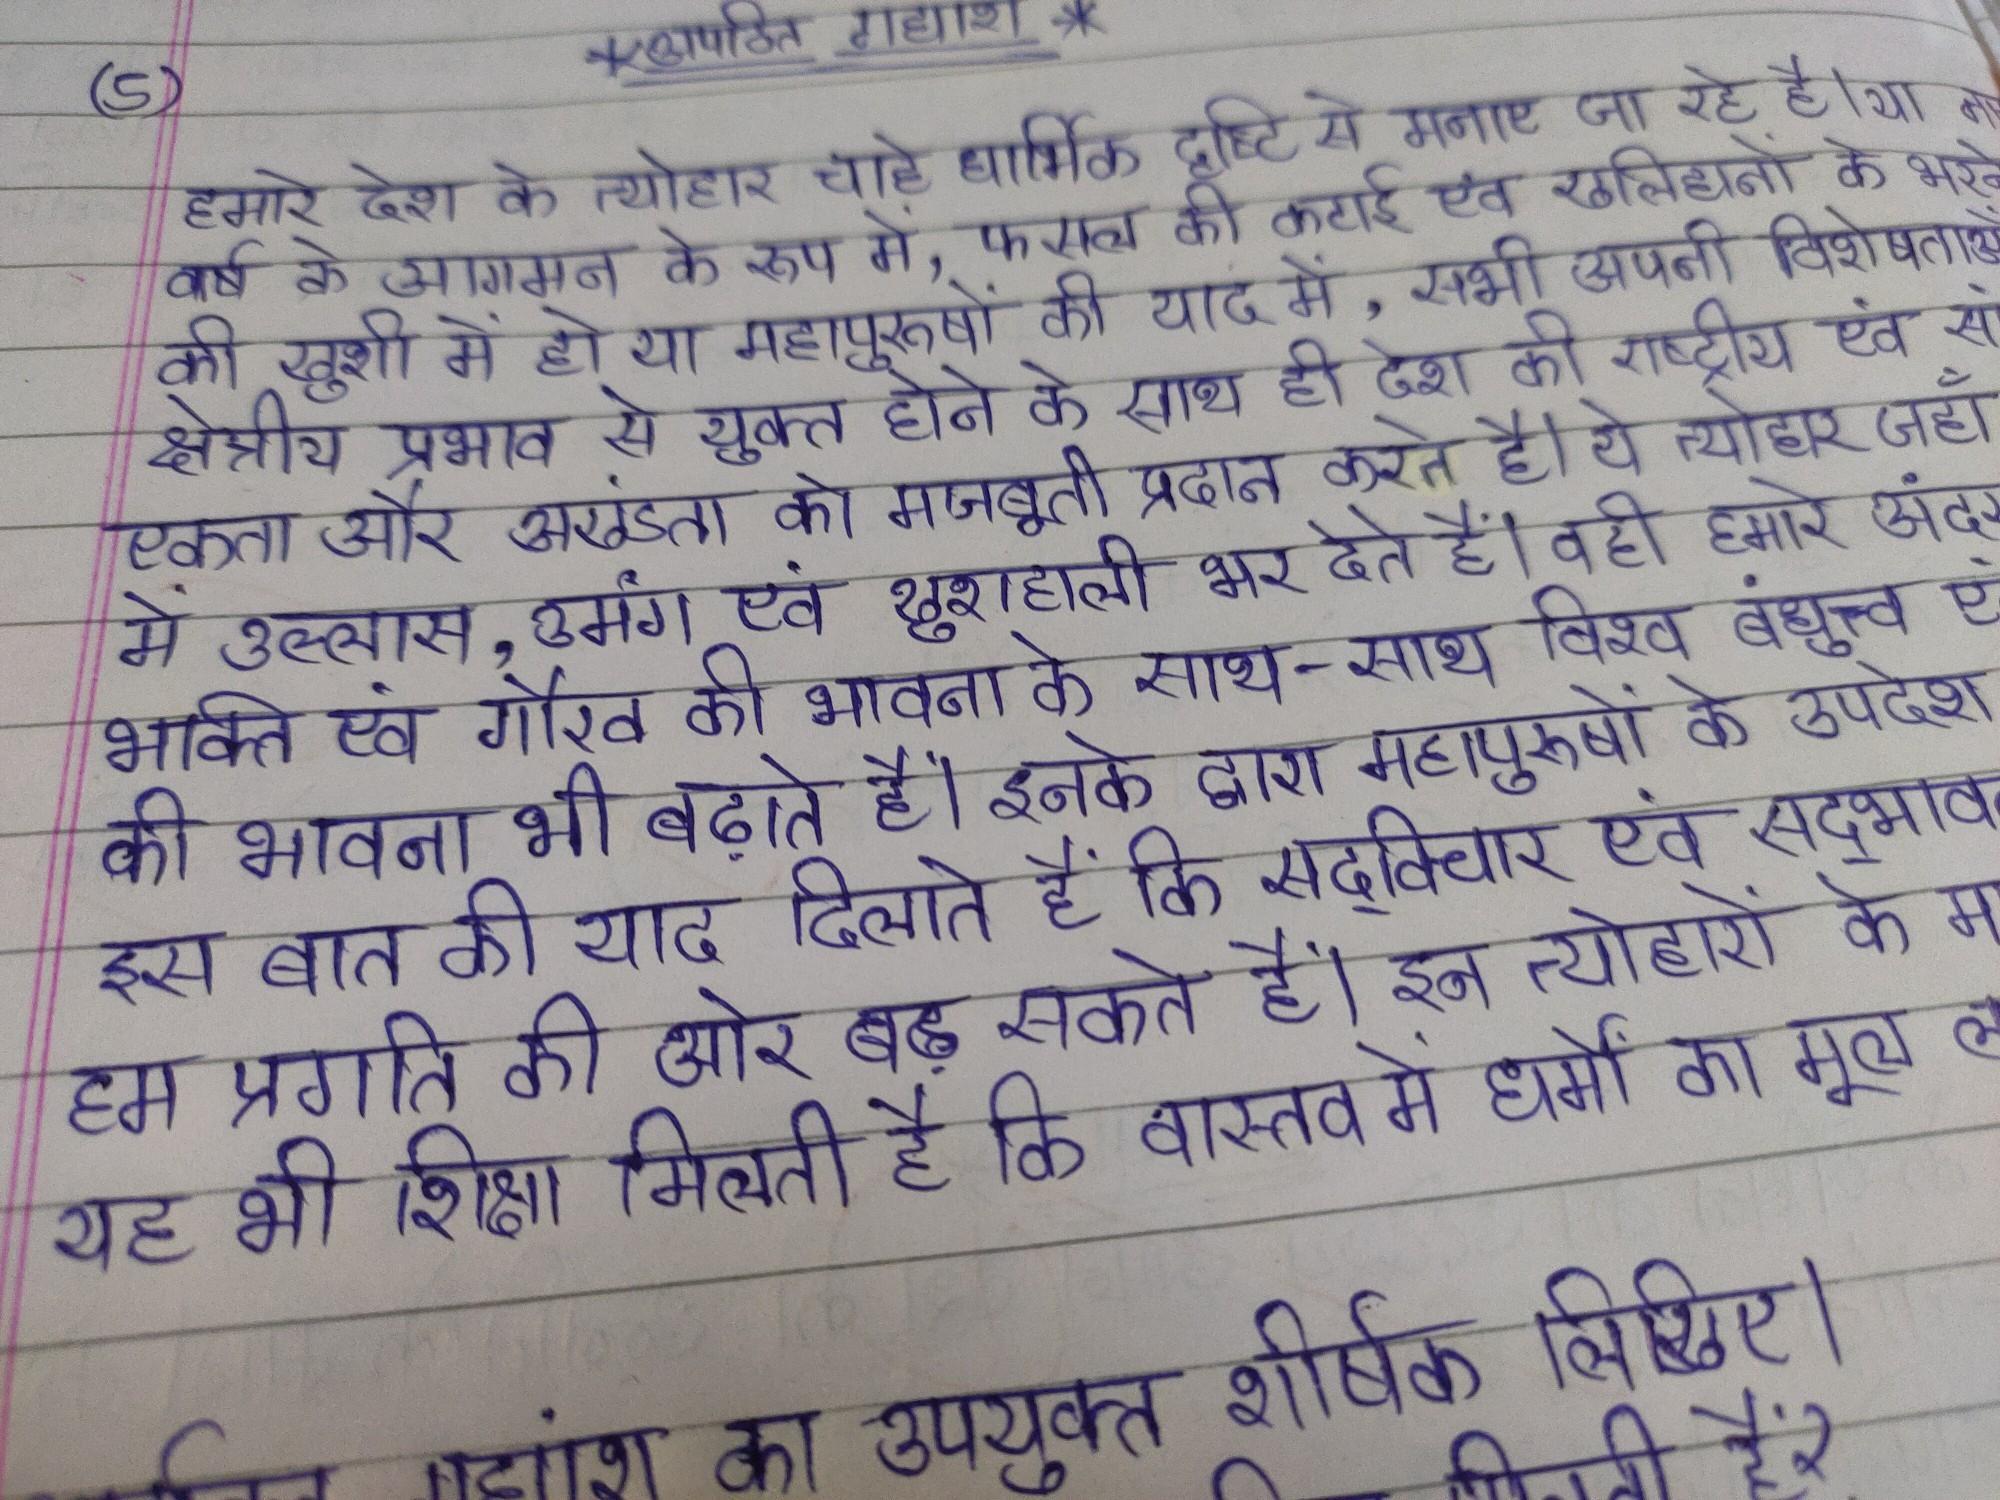 *अपठित गद्यांश*
(5)
हमारे देश के त्योहार चाहे धार्मिक दृष्टि से मनाए जा रहे है। या
वर्ष के आगमन के रूप में, फसल की कटाई एंव खलिहानों के भरने
की खुशी में हो या महापुरूषों की याद में, सभी अपनी विशेषताओं
क्षेत्रीय प्रभाव से युक्त होने के साथ ही देश की राष्ट्रीय एंव
एकता और अखंडता को मजबूती प्रदान करते है। ये त्योहार जहाँ
में उल्लास, उमंग एवं खुशहाली भर देते हैं। वही हमारे अंदर
भक्ति एंव गौरव की भावना के साथ-साथ विश्व बंधुत्व
की भावना भी बढ़ाते हैं। इनके द्वारा महापुरूषों के उपदेश
इस बात की याद दिलाते हैं कि सद्विचार एंव
हम प्रगति की ओर बढ़ सकते हैं। इन त्योहारों के
यह भी शिक्षा मिलती है कि वास्तव में धर्मों का मूल
गद्यांश का उपयुक्त शीर्षक लिखिए।